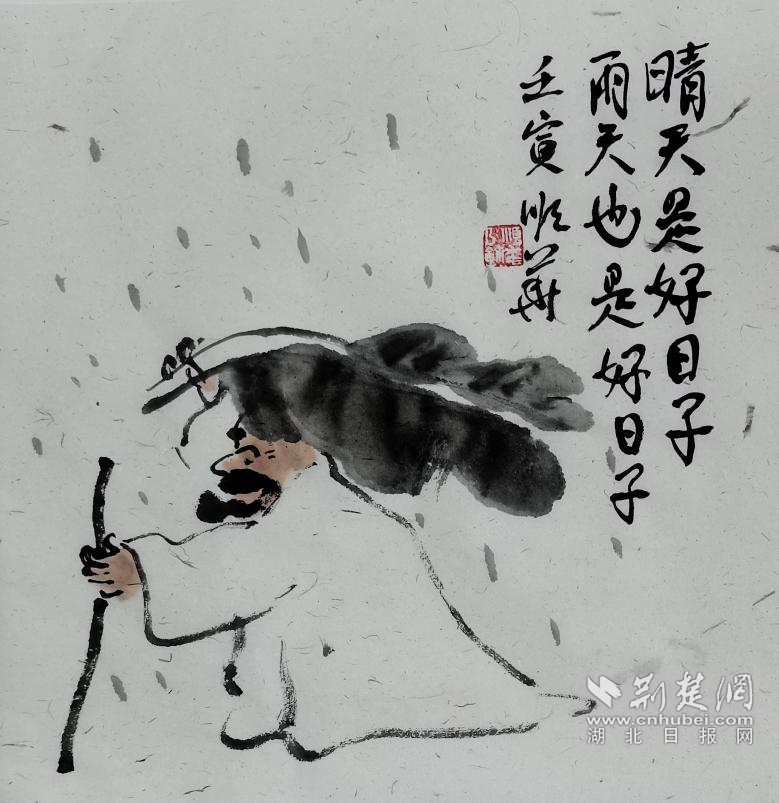 晴天是好日子
雨天也是好日子
壬寅顺华
荆楚网
www.cnhubei.com
湖北日报网